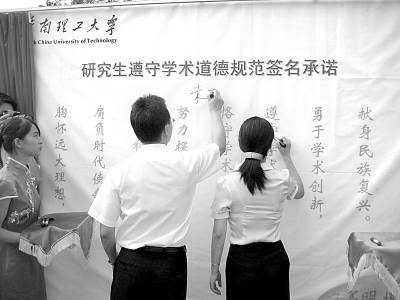 南理工大学
China University of Technology
研究生遵守学术道德规范签名承诺
胸怀远大理想，
肩负时代使
努力探
守学术
遵
勇于学术创新，
献身民族复兴。